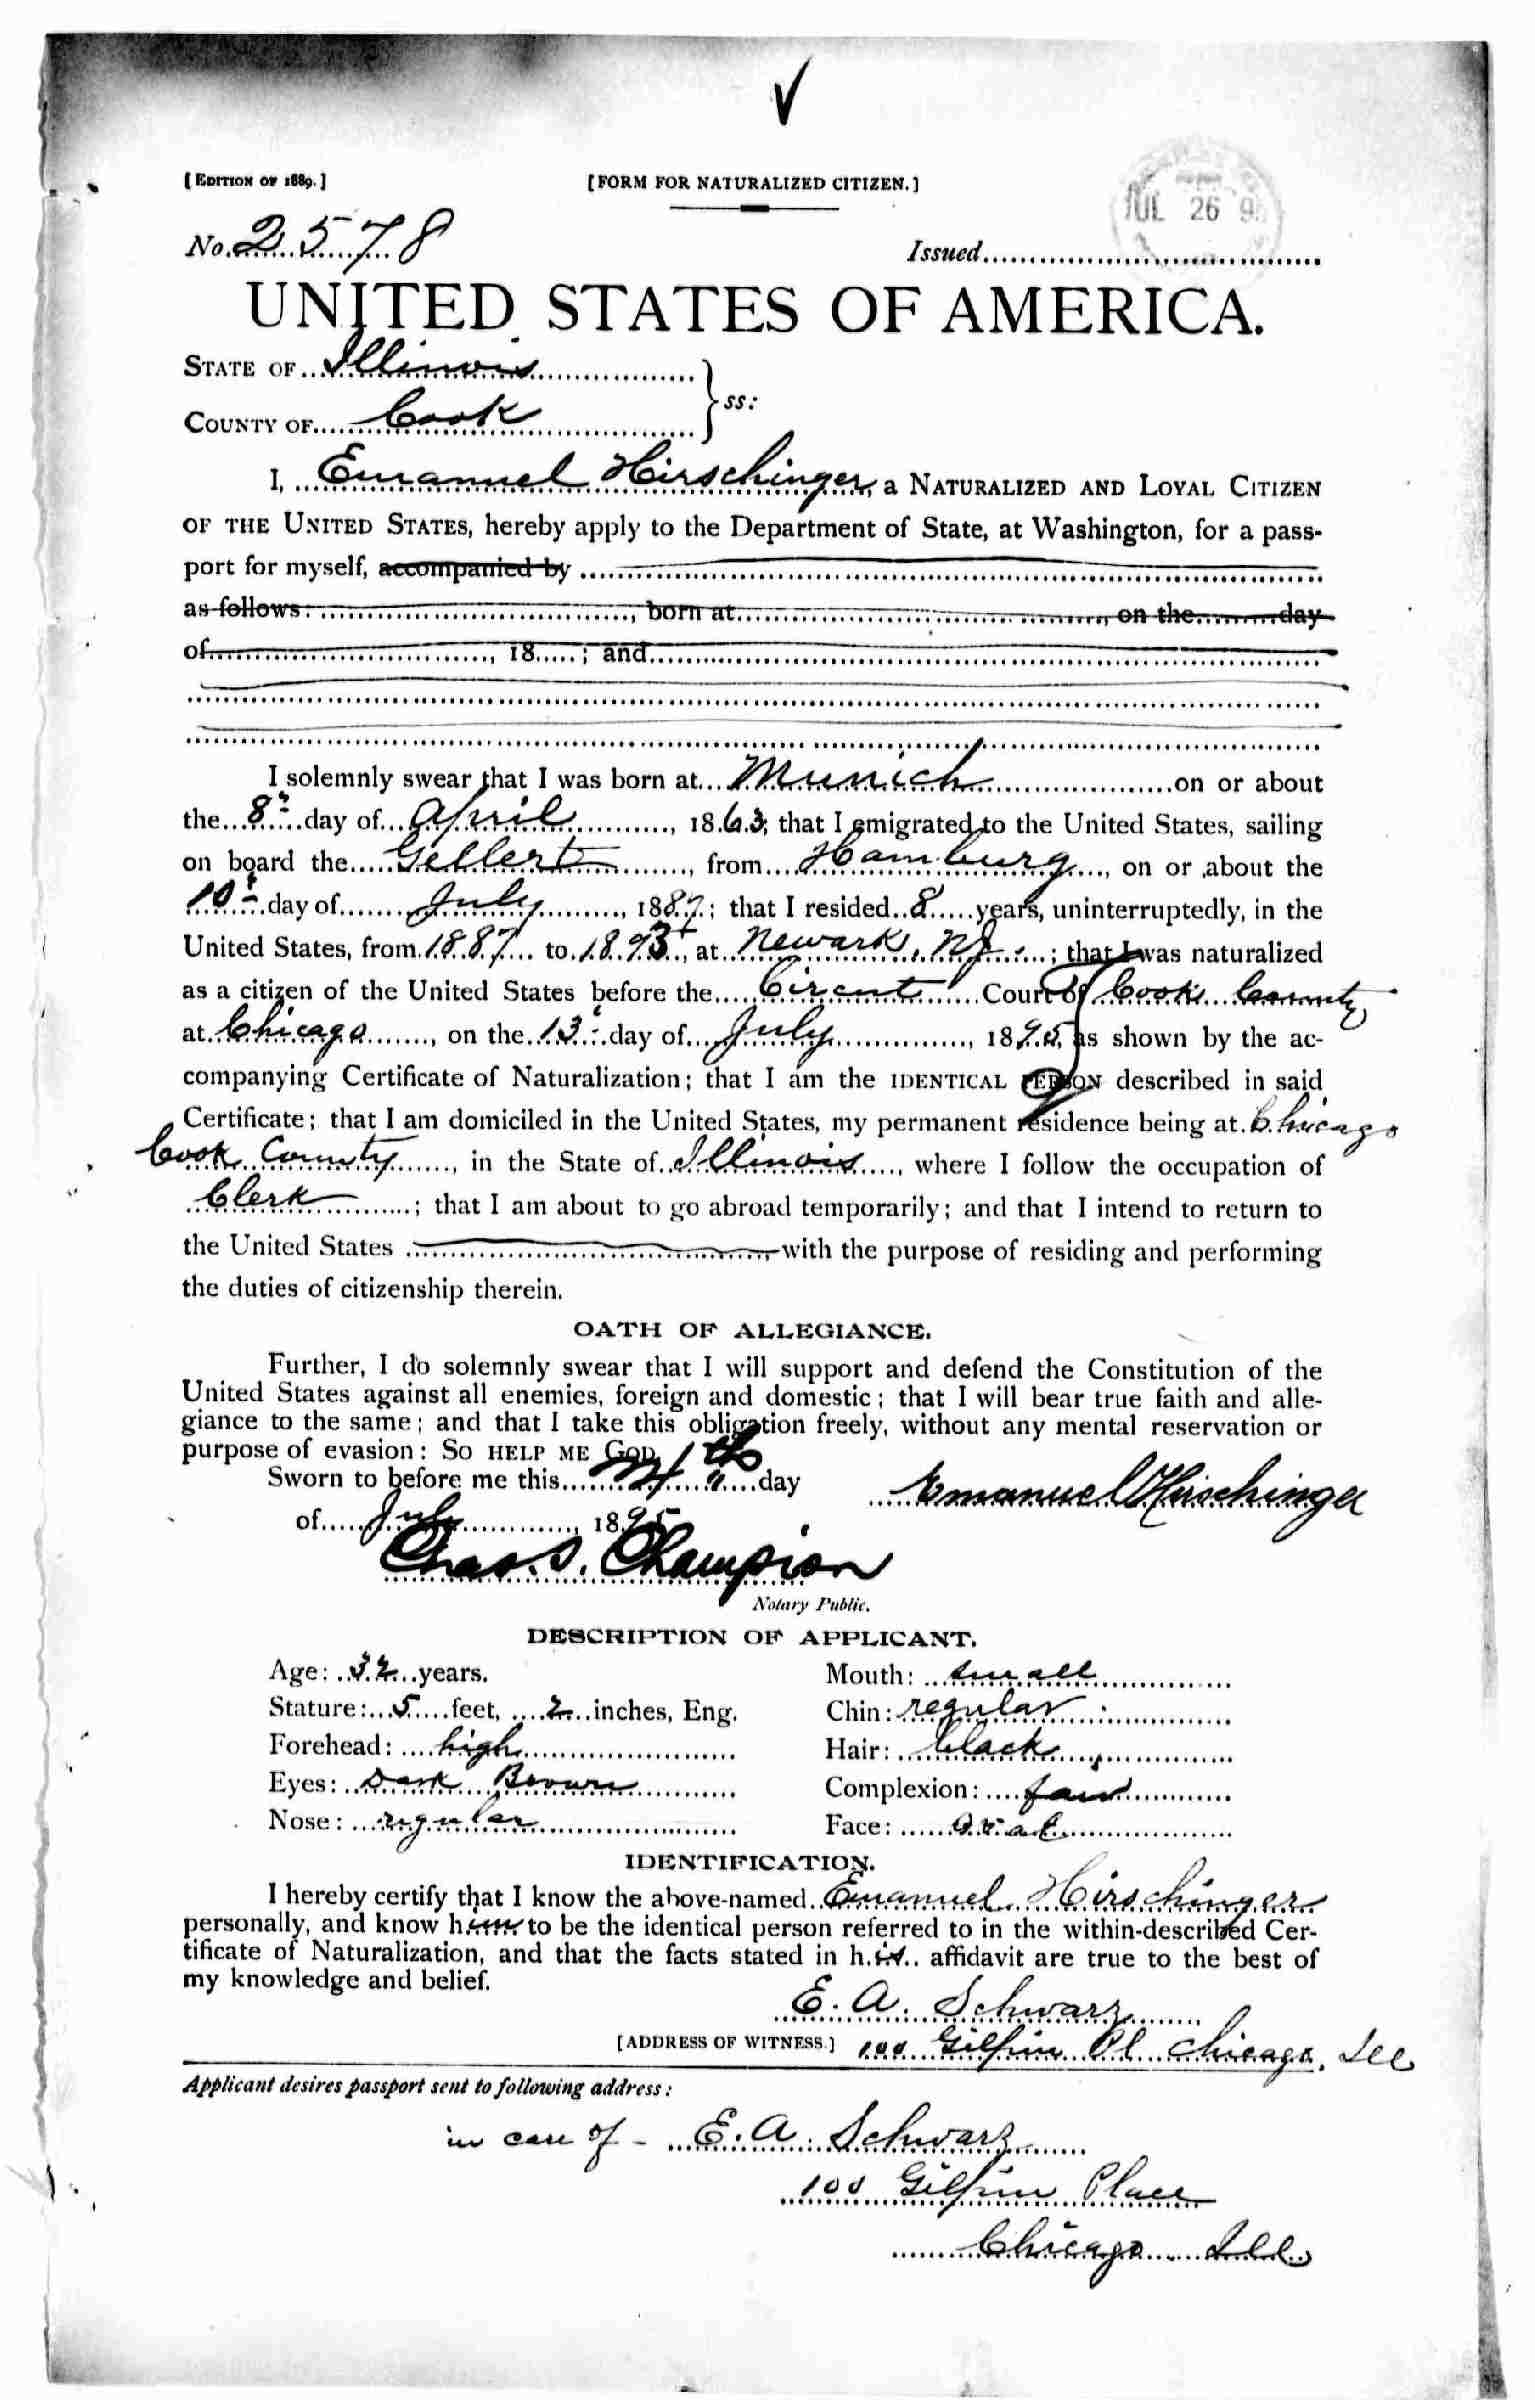 [EDITION OF 1889.]
[FORM FOR NATURALIZED CITIZEN.]
JUL 26 95
No. 2578 Issued
UNITED STATES OF AMERICA.
STATE OF Illinois
COUNTY OF Cook } ss:
I, Emanuel Hirschinger, a NATURALIZED AND LOYAL CITIZEN
OF THE UNITED STATES, hereby apply to the Department of State, at Washington, for a pass-
port for myself, accompanied by
as follows: , born at , on the day
of , 18 ; and
I solemnly swear that I was born at Munich on or about
the 8" day of April, 1863; that I emigrated to the United States, sailing
on board the Gellert, from Hamburg, on or about the
10" day of July, 1887; that I resided 8 years, uninterruptedly, in the
United States, from 1887 to 1893, at Newark, NJ.; that I was naturalized
as a citizen of the United States before the Circuit Court of Cook County
at Chicago, on the 13" day of July, 1895, as shown by the ac-
companying Certificate of Naturalization; that I am the IDENTICAL PERSON described in said
Certificate; that I am domiciled in the United States, my permanent residence being at Chicago
Cook County, in the State of Illinois, where I follow the occupation of
Clerk; that I am about to go abroad temporarily; and that I intend to return to
the United States with the purpose of residing and performing
the duties of citizenship therein.
OATH OF ALLEGIANCE.
Further, I do solemnly swear that I will support and defend the Constitution of the
United States against all enemies, foreign and domestic; that I will bear true faith and alle-
giance to the same; and that I take this obligation freely, without any mental reservation or
purpose of evasion: SO HELP ME GOD.
Sworn to before me this 24th day Emanuel Hirschinger
of July, 1895
Chas. S. Champion
Notary Public.
DESCRIPTION OF APPLICANT.
Age: 32 years. Mouth: small
Stature: 5 feet, 2 inches, Eng. Chin: regular
Forehead: high Hair: black
Eyes: Dark Brown Complexion: fair
Nose: regular Face: oval
IDENTIFICATION.
I hereby certify that I know the above-named Emanuel Hirschinger
personally, and know him to be the identical person referred to in the within-described Cer-
tificate of Naturalization, and that the facts stated in his affidavit are true to the best of
my knowledge and belief.
E. A. Schwarz
[ADDRESS OF WITNESS.] 100 Gilpin Pl. Chicago, Ill
Applicant desires passport sent to following address:
in care of - E. A. Schwarz
100 Gilpin Place
Chicago Ill.